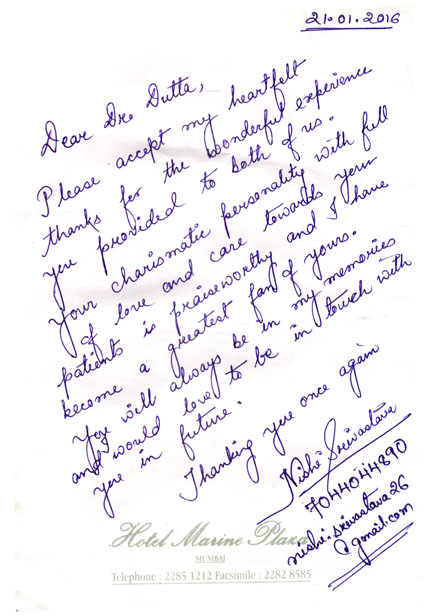 21.01.2016
Dear Dr. Dutta,
Please accept my heartfelt
thanks for the wonderful experience
you provided to both of us.
Your charismatic personality with full
of love and care towards your
patients is praiseworthy and I have
become a greatest fan of yours.
You will always be in my memories
and would love to be in touch with
you in future.
Thanking you once again
Nishi Srivastava
7044044890
nishi.srivastava26
@gmail.com
Hotel Marine Plaza
MUMBAI
Telephone : 2285 1212 Facsimile : 2282 8585